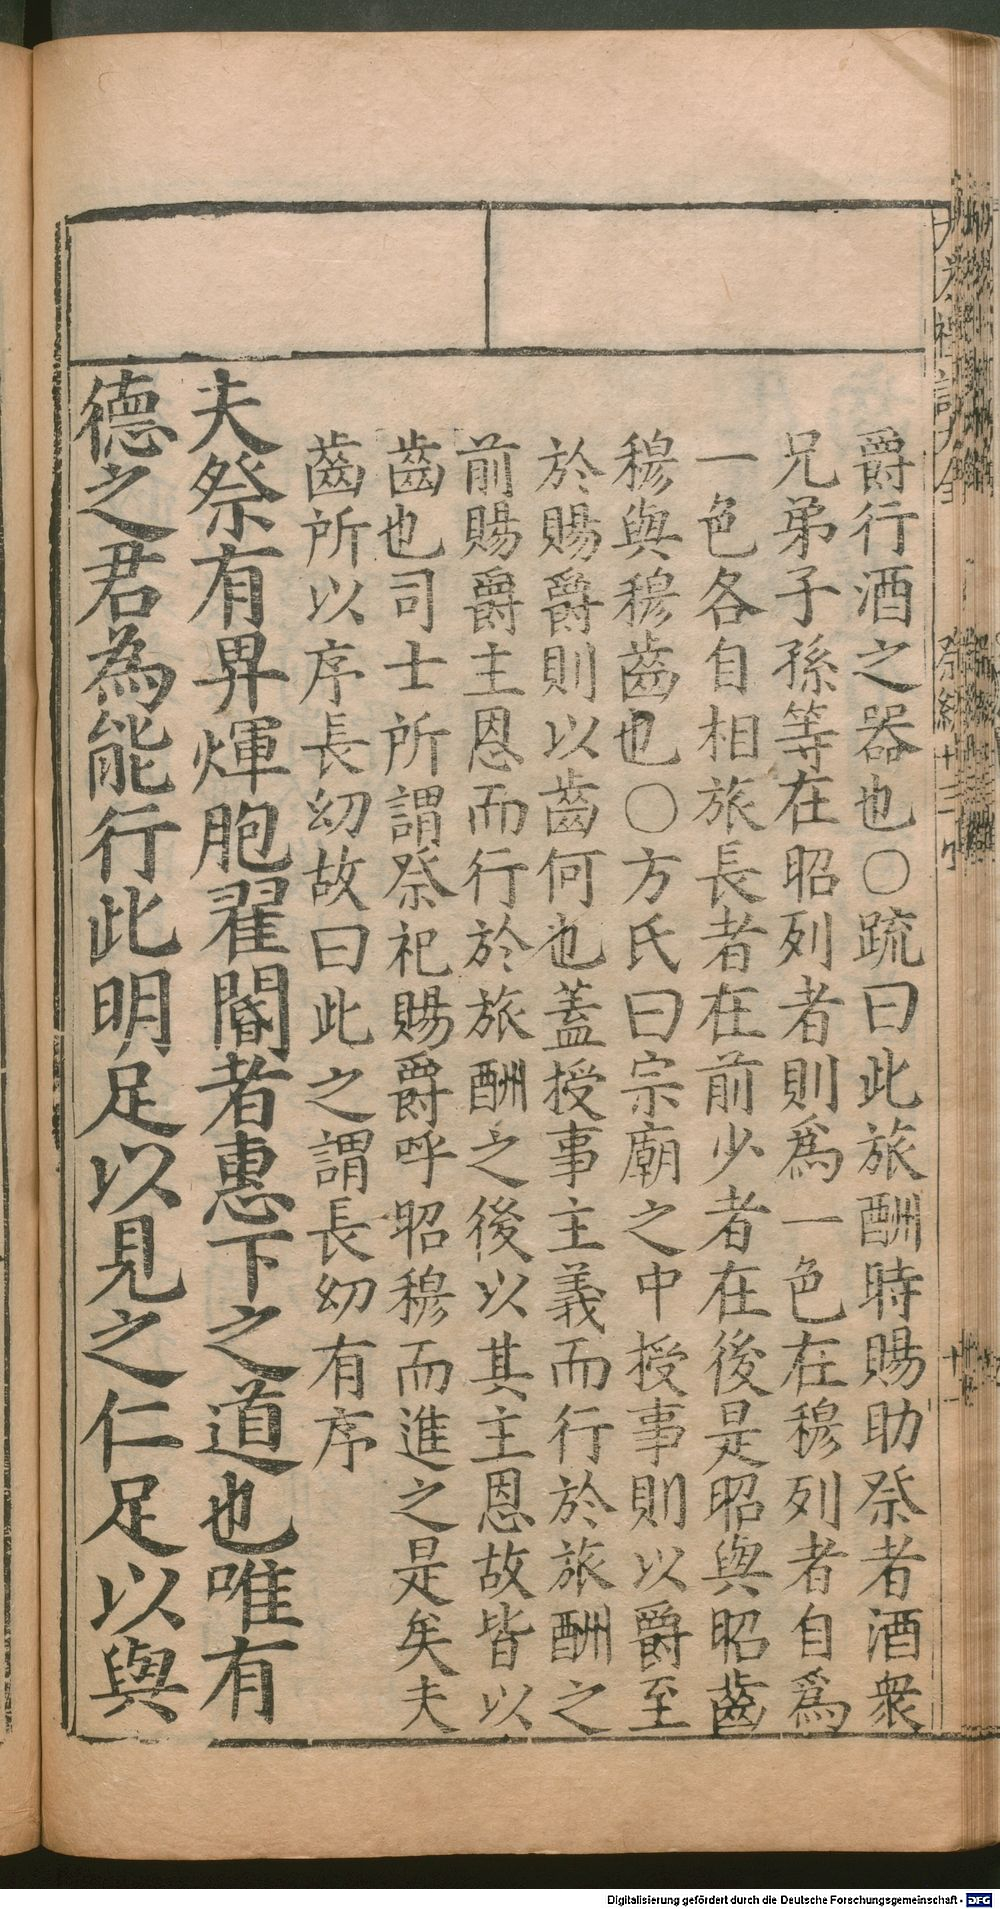 爵行酒之器也〇疏曰此旅酬時賜助祭者酒衆
兄弟子孫等在昭列者則爲一色在穆列者自爲
一色各自相旅長者在前少者在後是昭與昭齒
穆與穆齒也〇方氏曰宗廟之中授事則以爵至
於賜爵則以齒何也蓋授事主義而行於旅酬之
前賜爵主恩而行於旅酬之後以其主恩故皆以
齒也司士所謂祭祀賜爵呼昭穆而進之是矣夫
齒所以序長幼故曰此之謂長幼有序
夫祭有畀煇胞翟閽者惠下之道也唯有
德之君為能行此明足以見之仁足以與
Digitalisierung gefördert durch die Deutsche Forschungsgemeinschaft - DFG